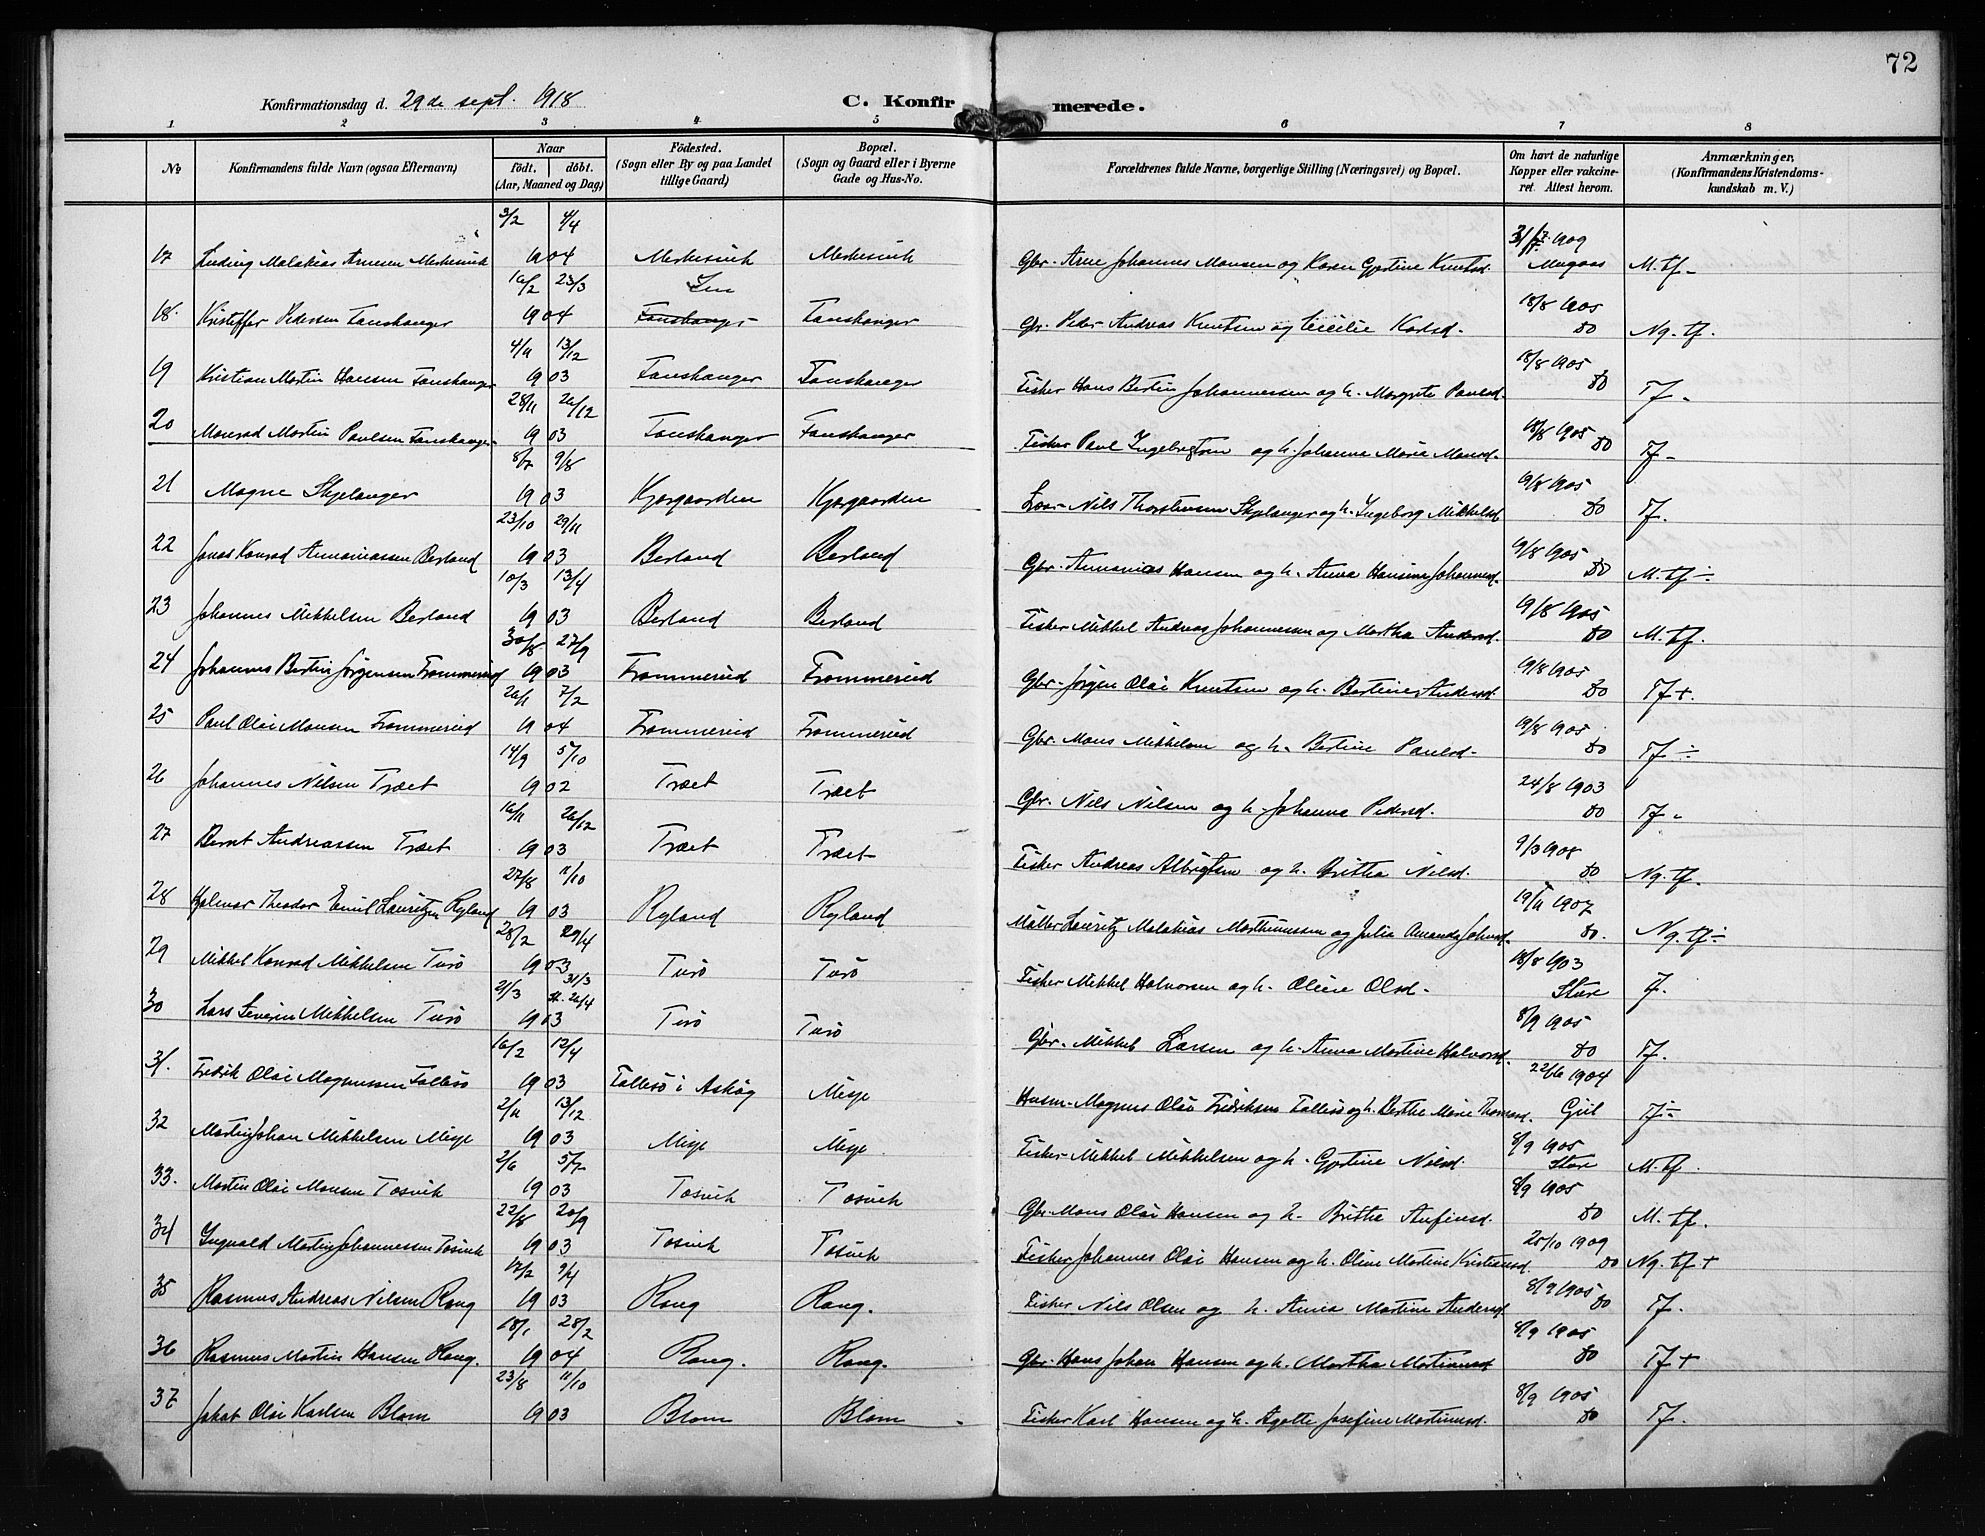 72
Konfirmationsdag d. 29de sept. 1918 C. Konfirmerede.
1 2 3 4 5 6 7 8
No Konfirmandens fulde Navn (ogsaa Efternavn) Naar født. døbt. (Aar, Maaned og Dag) Fødested. (Sogn eller By og paa Landet tillige Gaard) Bopæl. (Sogn og Gaard eller i Byerne Gade og Hus-No. Forældrenes fulde Navne, borgerlige Stilling (Næringsvei) og Bopæl. Om havt de naturlige Kopper eller vakcineret. Attest herom. Anmærkninger, (Konfirmandens Kristendomskundskab m. V.)
17 Ludvig Malakias Arnesen Merkesvik 3/2 4/4 1904 Merkesvik Merkesvik Gbr. Arne Johannes Monsen og Karen Gjertine Knutsd. 1909 M. tf.
18. Kristoffer Pedersen Tanskanger 16/2 23/3 1904 Tanskanger Gbr. Peder Andreas Knutsen og Cecilie 18/8 1905 do Ng. tf.
19 Kristian Martin Hansen Tanskanger 4/11 13/12 1903 Tanskanger Tanskanger Fisker Hans Bertin Johannessen og h. Margrete Paulsd. 18/8 1905 do Tf.
20 Monrad Martin Paulsen Tanskanger 28/11 26/12 1903 Tanskanger Tanskanger Fisker Paul Ingebrigtsen og h. Johanne Marie Monsd. 18/8 1905 do Tf.
21 Magne Skjelanger 8/7 9/8 1903 Kjærgaarden Kjærgaarden Nils Thorstensen Skjelanger og h. Ingeborg Mikkelsd 19/8 1905 do Tf.
22 Jonas Konrad Annaniassen Berland 23/10 29/11 1903 Berland Berland Gbr. Annanias Hansen og h. Anna Hansine Johannesd. 19/8 1905 do M. tf ÷
23 Johannes Mikkelsen Berland 10/3 13/4 1903 Berland Berland Fisker Mikkel Andreas Johannessen og Martha Andersd. 19/8 1905 do M. tf.
24 Johannes Bertin Jørgensen Frommereid 30/8 27/9 1903 Frommereid Frommereid Gbr. Jørgen Olai Knutsen og h. Bertine Andersd. 19/8 1905 do Tf +
25 Paul Olai Monsen Frommereid 26/1 7/2 1904 Frommereid Frommereid Gbr. Mons Mikkelsen og h. Bertine Paulsd. 19/8 1905 do Tf ÷
26 Johannes Nilsen Træet 14/9 5/10 1902 Træet Træet Gbr. Nils Nilsen og h. Johanna Pedersd. 24/8 1903 do Tf.
27 Bernt Andreassen Træet 16/11 26/12 1903 Træet Træet Fisker Andreas Albrigtsen og h. Britha Nilsd. 9/3 1908 do Ng. tf.
28 Hjelmar Theodor Emil Lauritzen Ryland 27/8 11/10 1903 Ryland Ryland Møller Lauritz Malakias Marthinussen og Julia Amanda Johnsd. 19/11 1907 do. Ng. tf ÷
29 Mikkel Konrad Mikkelsen Turø 28/2 29/4 1903 Turø Turø Fisker Mikkel Halvorsen og h. Oline Olsd. 18/8 1903 Sture Tf.
30 Lars Severin Mikkelsen Turø 21/3 31/3 st. 26/4 1903 Turø Turø Gbr. Mikkel Larsen og h. Anna Martine Halvorsd. 8/9 1905 do Tf.
31. Fredrik Olai Magnussen Follesø 16/2 12/4 1903 Follesø i Askøy Misje Husm. Magnus Olai Fredriksen Follesø og h. Berthe Marie Thomasd. 22/6 1904 Tf ÷
32 Martin Johan Mikkelsen Misje 2/11 13/12 1903 Misje Misje. Fisker Mikkel Mikkelsen og h. Gjertine Nilsd. 8/9 1905 Sture M. tf.
33. Martin Olai Monsen Tosvik 2/6 5/7 1903 Tosvik Tosvik Gbr. Mons Olai Hansen og h. Britha Anfinsd. 8/9 1905 do M. tf.
34 Ingvald Martin Johannessen Tosvik 22/8 20/9 1903 Tosvik Tosvik Fisker Johannes Olai Hansen og h. Oline Martine Kristiansd. 25/10 1909 do Ng. tf +
35 Rasmus Andreas Nilsen Rong 17/2 9/4 1903 Rong Rong. Fisker Nils Olsen og h. Anna Martine Andersd 8/9 1905 do Tf.
36 Rasmus Martin Hansen Rong. 18/1 28/2 1904 Rong. Rong. Gbr. Hans Johan Hansen og h. Martha Martinusd 8/9 1905 do Tf +
37 Jakob Olai Karlsen Blom 23/8 11/10 1903 Blom Blom Fisker Karl Hansen og h. Agathe Josefine Martinusd. 8/9 1905 do Tf.